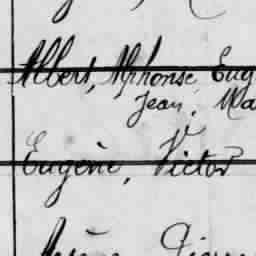 Albert, Alphonse Eug
Jean, Ma
Eugène, Victor